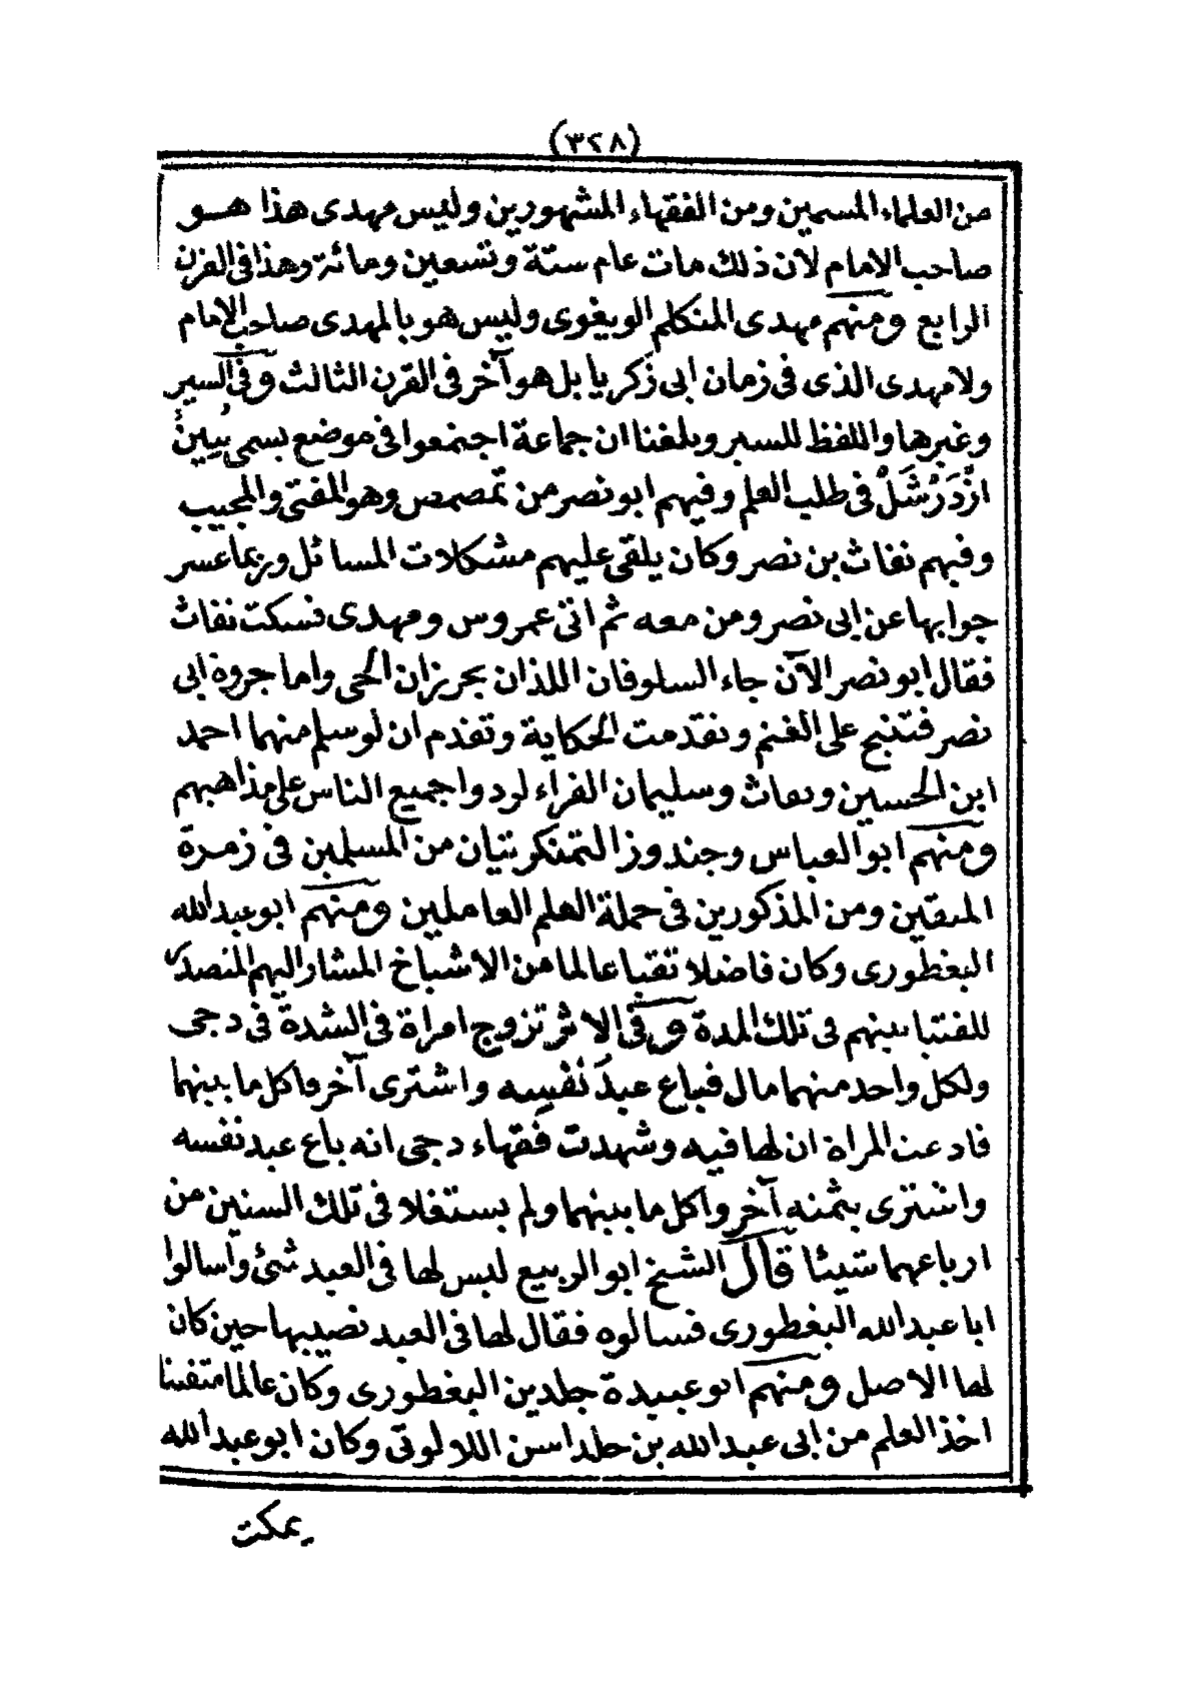 (٣٢٨)
من العلماء المسمين ومن الفقهاء المشهورين وليس مهدى هذا هـو
صاحب الامام لان ذلك مات عام ستة وتسعين ومائة وهذا فى القرن
الرابع ومنهم مهدى المتكلم الويغوى وليس هو بالمهدى صاحب الامام
ولا مهدى الذى فى زمان ابى زكريا بل هو آخر فى القرن الثالث وفى السير
وغيرها واللفظ للسير وبلغنا ان جماعة اجتمعوا فى موضع يسمى
فى طلب العلم وفيهم ابو نصر من تمصمص وهو المفتى والمجيب
وفيهم نفاث بن نصر وكان يلقى عليهم مشكلات المسائل وربما عسر
جوابها عن ابى نصر ومن معه ثم اتى عمروس ومهدى فسكت نفاث
فقال ابو نصر الآن جاء السلوفان اللذان يحرزان الحى واما جروة ابى
نصر فتنبح على الغنم وتقدمت الحكاية وتقدم ان لو سلم منهما احمد
ابن الحسين ونفاث وسليمان الفراء لردوا جميع الناس على مذاهبهم
ومنهم ابو العباس وجندوز التمنكرتيان من المسلمين فى زمـرة
المتقين ومن المذكورين فى حملة العلم العاملين ومنهم ابو عبد الله
البغطورى وكان فاضلا تقيا عالما من الاشياخ المشار اليهم المتصد
للفتيا بينهم فى تلك المدة وفى الاثر تزوج امراة فى الشدة فى دجى
ولكل واحد منهما مال فباع عبدَ نَفْسِه واشترى آخر واكل ما بينهما
فادعت المراة ان لها فيه وشهدت فقهاء دجى انه باع عبد نفسه
واشترى بثمنه آخر واكل ما بينهما ولم يستغلا فى تلك السنين من
ارباعهما شيئا قال الشيخ ابو الربيع ليس لها فى العبد شئ وآسالوا
ابا عبد الله البغطورى فسالوه فقال لها فى العبد نصيبها حين كان
لها الاصل ومنهم ابو عبيدة جلدين البغطورى وكان عالما متفننا
اخذ العلم من ابى عبد الله بن جلداسن اللالوتى وكان ابو عبد الله
يمكث